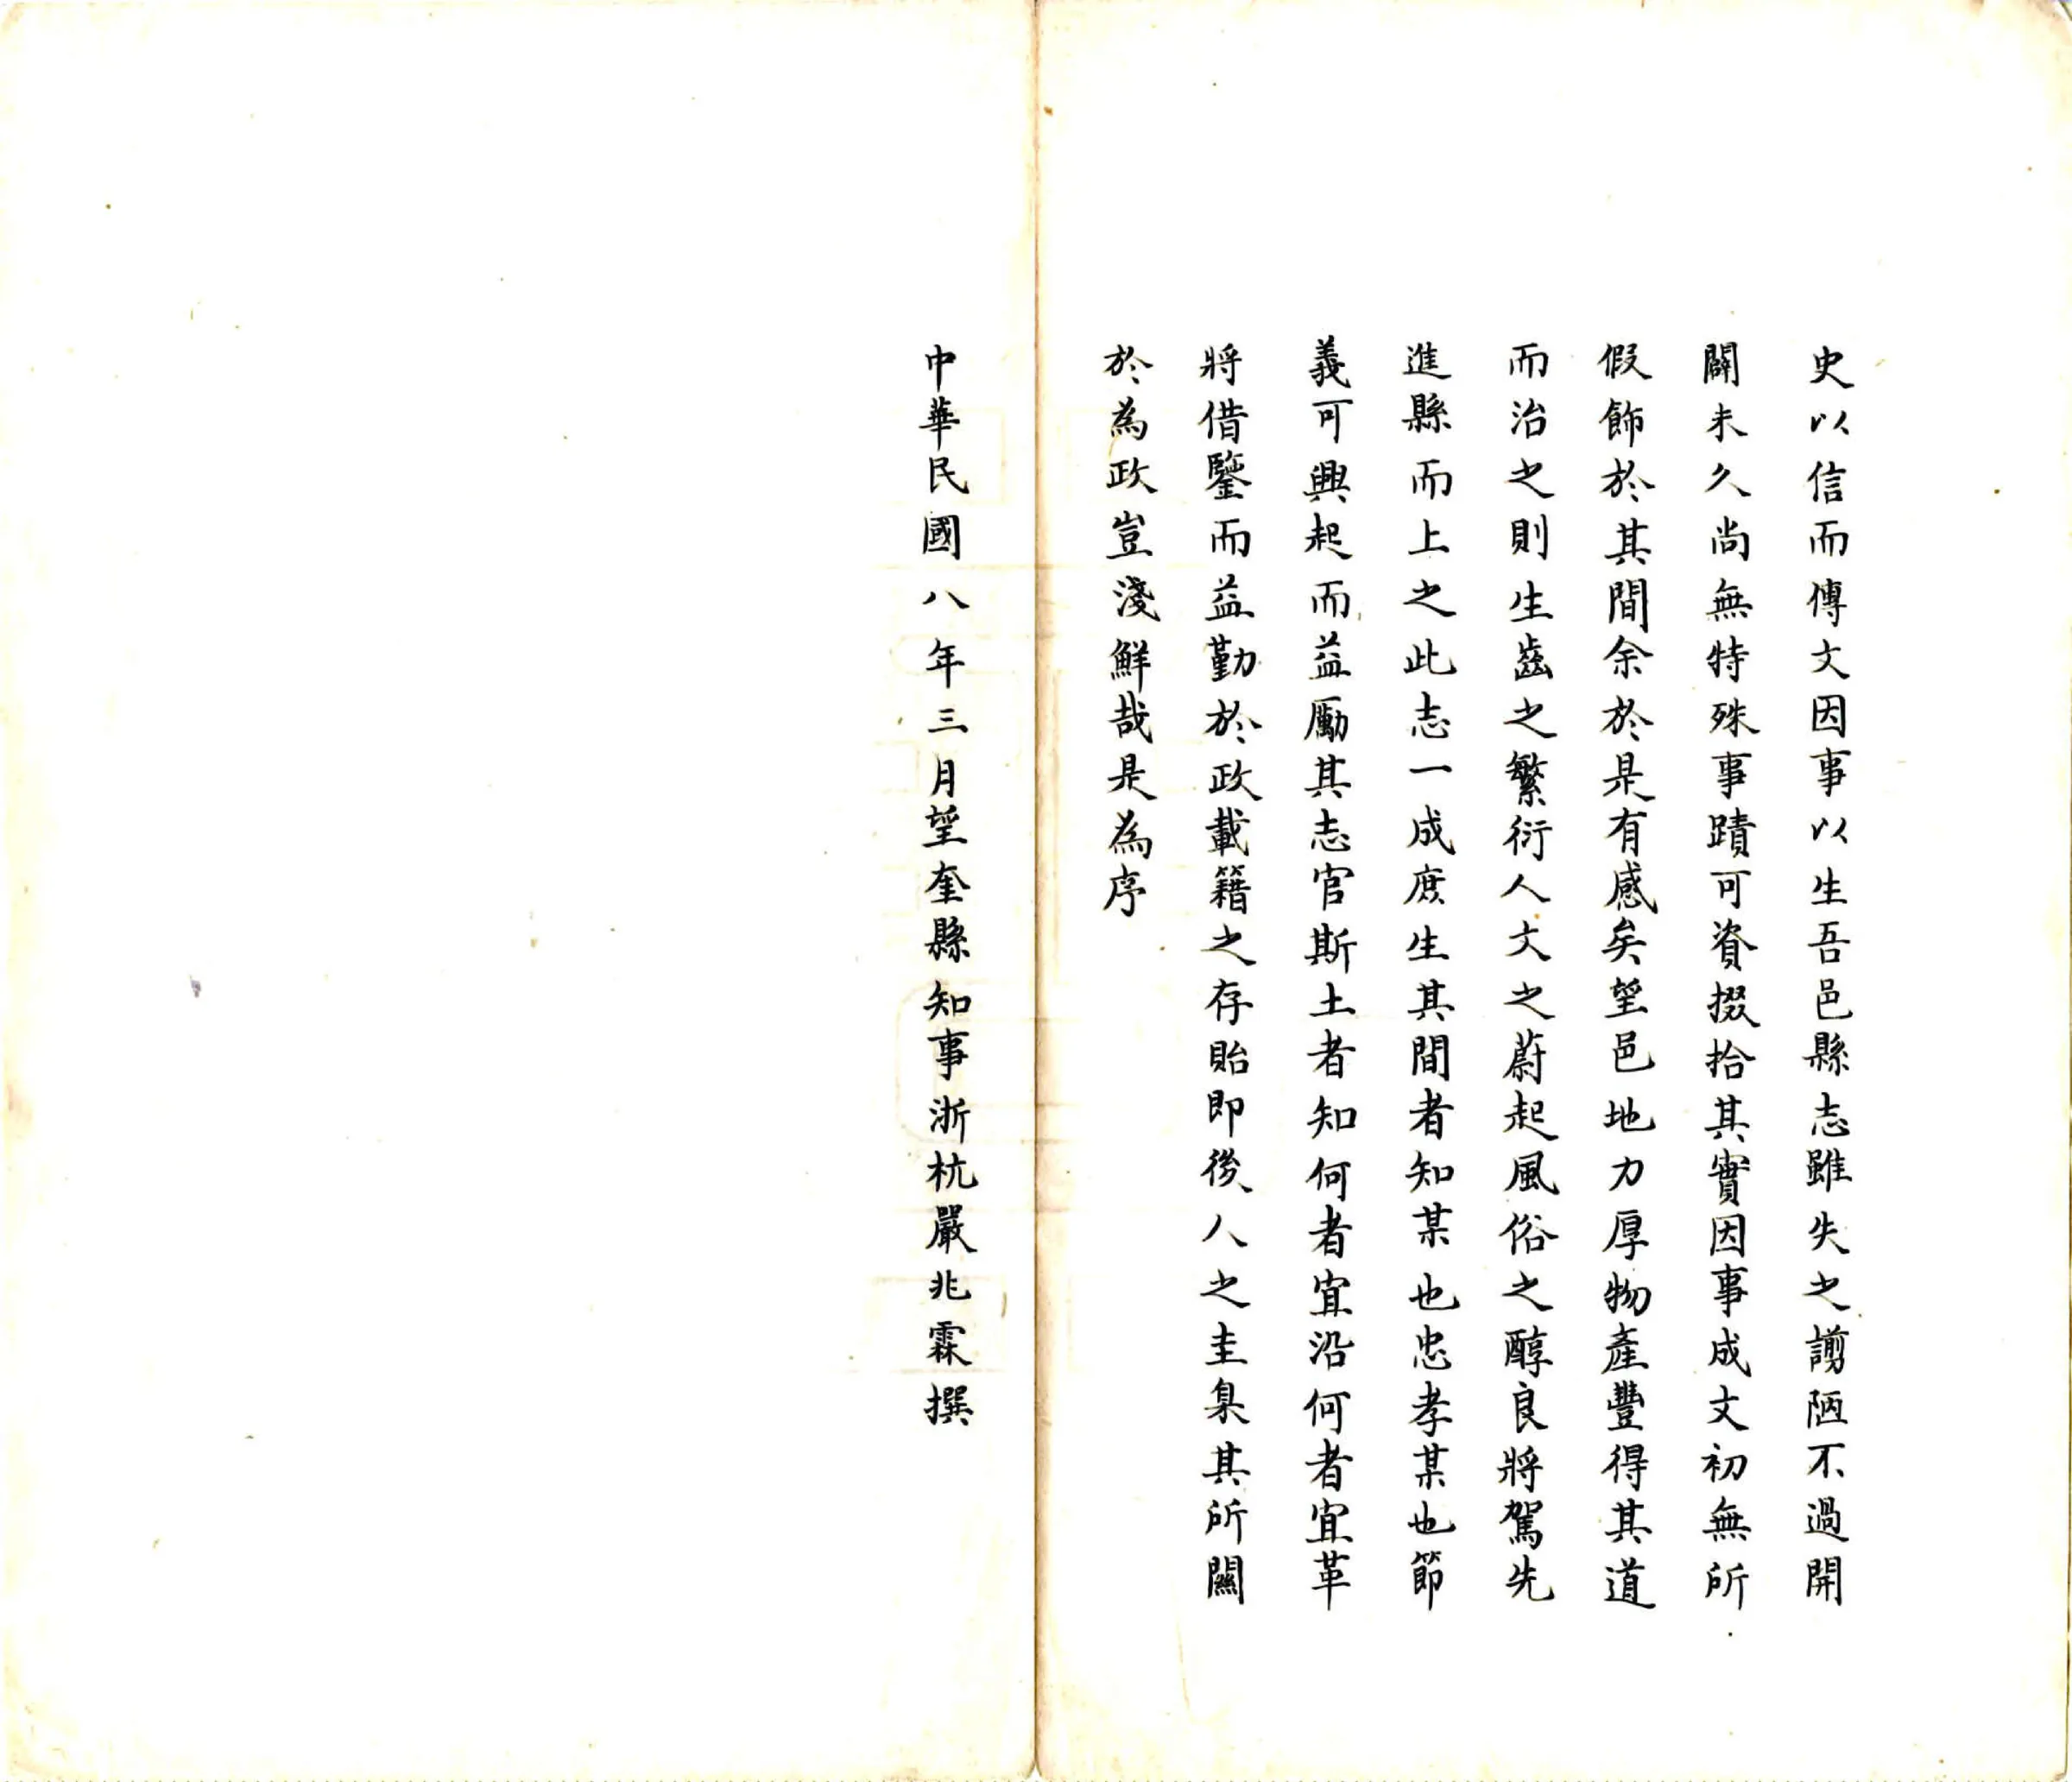 史以信而傳文因事以生吾邑縣志雖失之謭陋不過開
闢未久尚無特殊事蹟可資掇拾其實因事成文初無所
假飾於其間余於是有感矣望邑地力厚物產豐得其道
而治之則生齒之繁衍人文之蔚起風俗之醇良將駕先
進縣而上之此志一成庶生其間者知某也忠孝某也節
義可興起而益勵其志官斯土者知何者宜沿何者宜革
將借鑒而益勤於政載籍之存貽即後人之圭臬其所關
於為政豈淺鮮哉是為序
中華民國八年三月望奎縣知事浙杭嚴兆霖撰